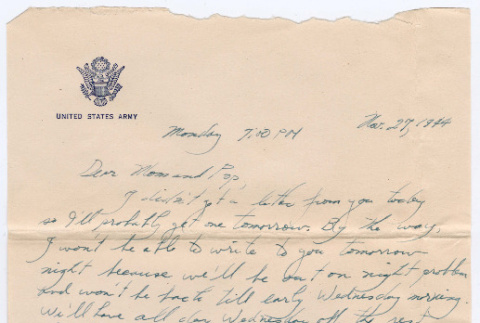 UNITED STATES ARMY
Monday 7:00 PM Nov. 27, 1944
Dear Mom and Pop,
I didn't get a letter from you today
so I'll probably get one tomorrow. By the way,
I won't be able to write to you tomorrow
night because we'll be out on night problem
and won't be back till early Wednesday morning.
We'll have all day Wednesday off the rest